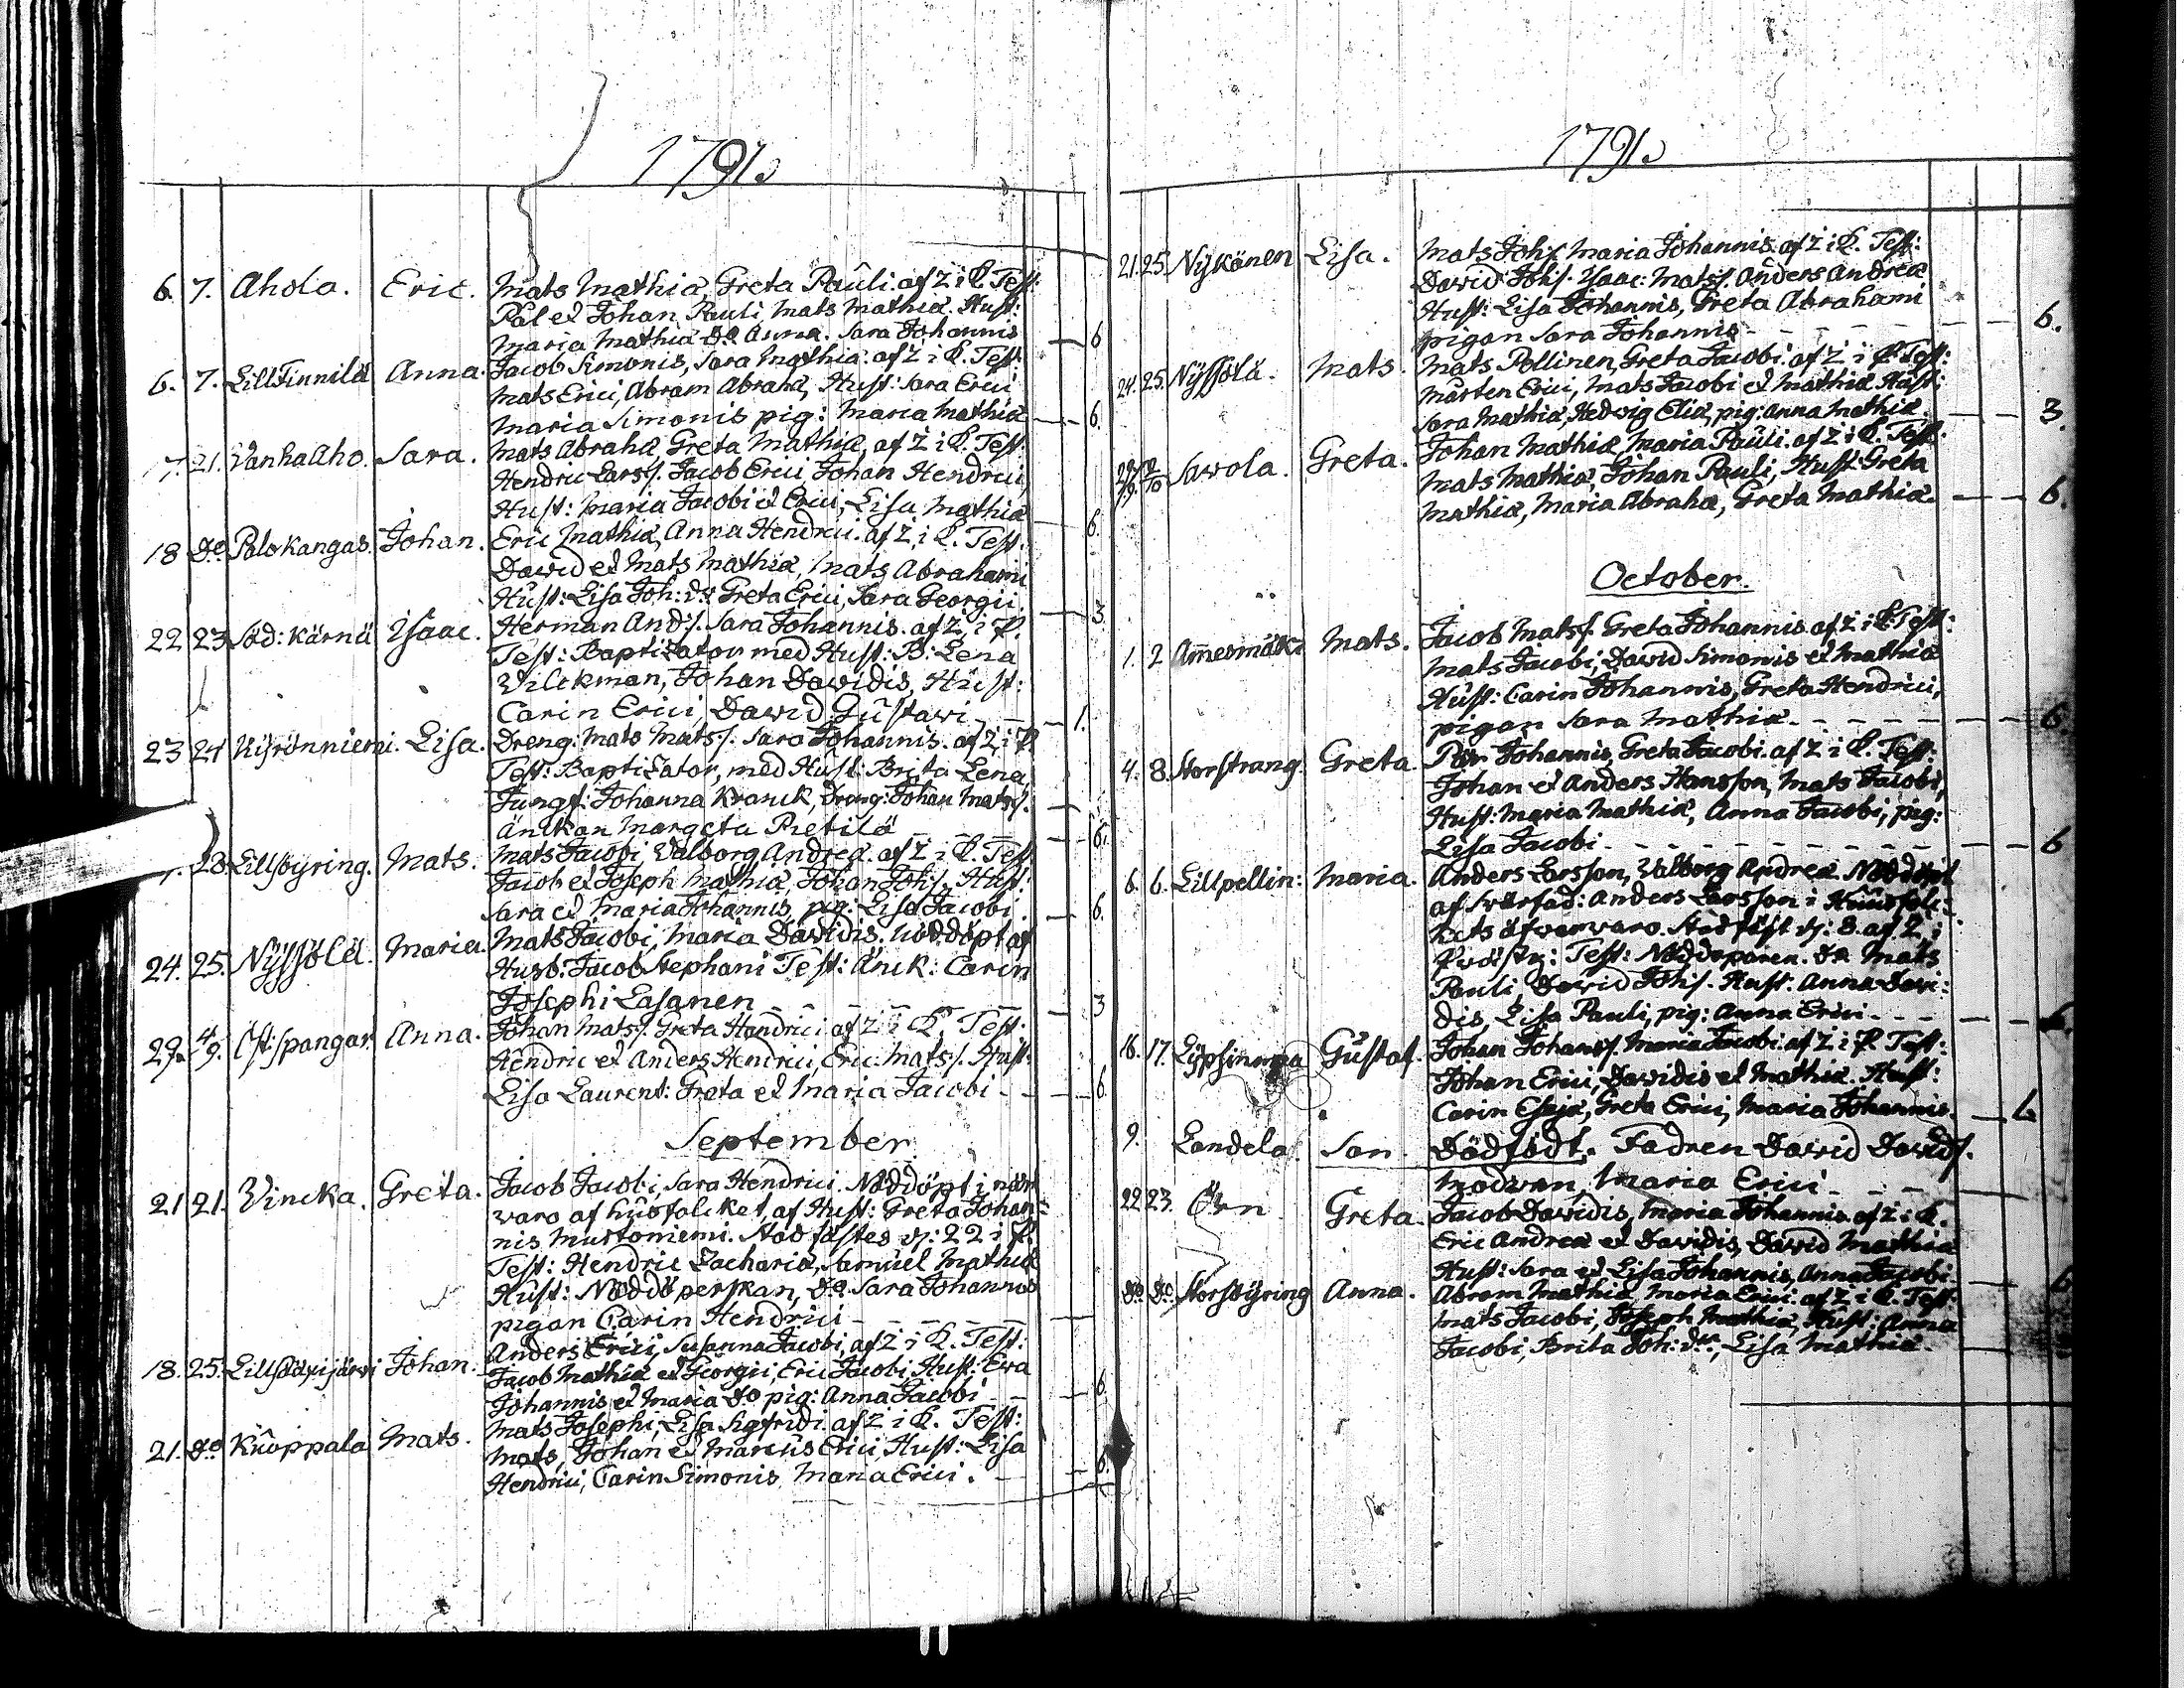 1791.
6. 7. Ahola. Eric. Mats Mathiæ, Greta Pauli. af Z i K. Test:
Pål et Johan Pauli, Mats Mathiæ. Hust:
Maria Mathiæ Do Anna. Sara Johannis 6
6. 7. LillFinnilä Anna. Jacob Simonis, Sara Mathiæ. af Z i K. Test:
Mats Erici, Abram Abrahæ, Hust: Sara Erici
Maria Simonis pig: Maria Mathiæ 6.
17. 21. VanhaAho. Sara. Mats Abrahæ, Greta Mathiæ, af Z i K. Test:
Hendric Larss. Jacob Erici Johan Hendrici,
Hust: Maria Jacobi et Erici, Lisa Mathiæ 6.
18 Do Palokangas. Johan. Eric Mathiæ, Anna Hendrici. af Z. i K. Test.
David et Mats Mathiæ, Mats Abrahami
Hust: Lisa Joh: dr Greta Erici, Sara Georgii. 3
22 23 Söd: Kärnä Isaac. Herman Ands. Sara Johannis. af Z. i P.
Test: Baptizator med Hust: B: Lena
Wilckman, Johan Davidis, Hust:
Carin Erici, David Gustavi 1.
23 24 Lisa. Dreng: Mats Matss. Sara Johannis. af Z i P.
Test: Baptizator, med Hust. Brita Lena,
Jungf: Johanna Kranck, Dreng: Johan Matss.
Änckan Margeta Pietilä 6.
28. Lillbyring. Mats. Mats Jacobi, Walborg Andreæ. af Z i K. Test
Jacob et Joseph Mathiæ, Johan Johs. Hust:
Sara et Maria Johannis, pig: Lisa Jacobi. 6.
24. 25. Nyssölä. Maria. Mats Jacobi, Maria Davidis. Nöddöpt af
Husb: Jacob Stephani Test: Änck: Carin
Josephi Lasanen 3
29. 4/9. Öst: spangar Anna. Johan Matss. Greta Hendrici af Z i K. Test:
Hendric et Anders Hendrici, Eric Matss. Hust:
Lisa Laurent: Greta et Maria Jacobi 6.
September
21 21. Vincka. Greta. Jacob Jacobi, Sara Hendrici. Nöddöpt i när
varo af husfolcket af Hust: Greta Johan=
nis Mustoniemi. Stadfästes d: 22 i P.
Test: Hendric Zachariæ, Samuel Mathiæ
Hust: Nöddöperskan, Do Sara Johannis
pigan Carin Hendrici
18. 25. Johan. Anders Erici, Susanna Jacobi, af Z i K. Test:
Jacob Mathiæ et Georgii, Eric Jacobi, Hust: Eva
Johannis et Maria Do pig: Anna Jacobi 6.
21. Do Knoppala Mats. Mats Josephi, Lisa Sigfridi. af Z i K. Test:
Mats, Johan et Marcus Erici, Hust: Lisa
Hendrici, Carin Simonis, Maria Erici. 6.
1791.
21. 25. Nykänen Lisa. Mats Johs. Maria Johannis. af Z i K. Test:
David Johs. Isaac Matss. Anders Andreæ
Hust: Lisa Johannis, Greta Abrahami
pigan Sara Johannis 6.
24. 25. Nyssölä. Mats. Mats Pollinen, Greta Jacobi. af Z. i K. Test:
Mårten Erici, Mats Jacobi et Mathiæ Hust:
Sara Mathiæ, Hedvig Eliæ, pig: Anna Mathiæ. 3.
29/9. 2/10 Savola. Greta. Johan Mathiæ, Maria Pauli. af Z i K. Test:
Mats Mathiæ, Johan Pauli, Hust: Greta
Mathiæ, Maria Abrahæ, Greta Mathiæ. 6.
October.
1. 2 Mats. Jacob Matss. Greta Johannis. af Z i K. Test:
Mats Jacobi, David Simonis et Mathiæ
Hust: Carin Johannis, Greta Hendrici,
pigan Sara Mathiæ. 6.
4. 8. Storstrang. Greta. Pär Johannis, Greta Jacobi. af Z i K. Test:
Johan et Anders Hansson, Mats Jacobi,
Hust: Maria Mathiæ, Anna Jacobi, pig:
Lisa Jacobi. 6
6. 6. Lillpellin: Maria. Anders Larsson, Walborg Andreæ. Nöddöpt
af Svärfad: Anders Larsson i Husfolc=
kets öfvervaro. Stadfäst d: 8. af Z. i
Test: Nöddöparen. Do Mats
Pauli David Johs. Hust: Anna Davi:
dis, Lisa Pauli, pig: Anna Erici 6.
16. 17. Gustaf. Johan Johanss. Maria Jacobi. af Z i P. Test:
Johan Erici, Davidis et Mathiæ. Hust:
Carin Esajæ, Greta Erici, Maria Johannis.
9. Landela. Son. Dödfödt. Fadren David Davids.
Modren, Maria Erici
22 23. Örn Greta. Jacob Davidis, Maria Johannis. af Z i K.
Eric Andreæ et Davidis, David Mathiæ
Hust: Sara et Lisa Johannis, Anna Jacobi. 6
Do Do Storbyring Anna. Abram Mathiæ, Maria Erici. af Z i K. Test:
Mats Jacobi, Joseph Mathiæ, Hust: Anna
Jacobi, Brita Joh: dr, Lisa Mathiæ.